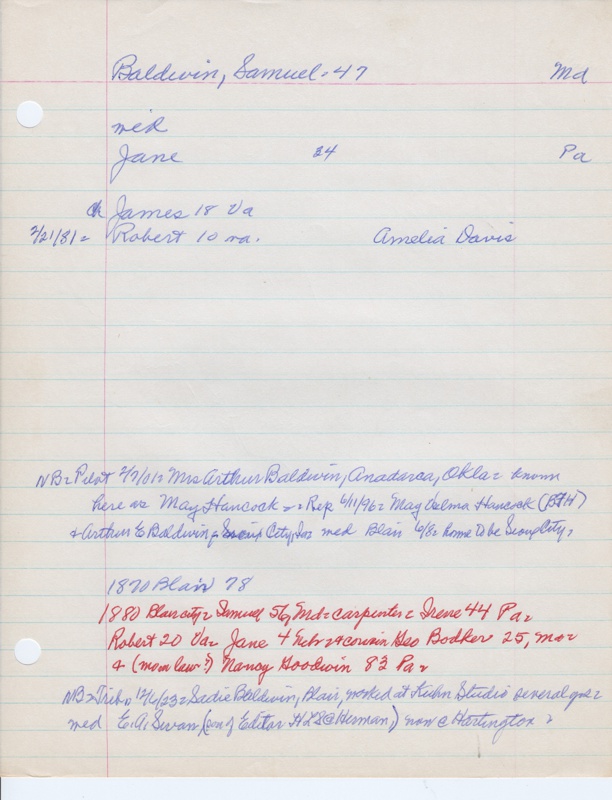 Baldwin, Samuel - 47 Md
med
Jane 34 Pa
ch James 18 Va
2/21/81 = Robert 10 va. Amelia Davis
NB = Pilot 2/7/01 = Mrs Arthur Baldwin, Anadarca, Okla = known
here as May Hancock = Rep 6/11/96 = May Velma Hancock
& Arthur E Baldwin, City, Ia = med Blair 6/8 = home to be Sioux City =
1870 Blair 78
1880 Blair city = Samuel 56, Md = carpenter = Irene 44 Pa =
Robert 20 Va = Jane 4 Nebr = & cousin Geo Bodker 25, mo =
& (mom law?) Nancy Goodwin 83 Pa =
NB = Trib = 12/6/23 = Sadie Baldwin, Blair, worked at Kuhn Studio several yrs =
med E. A. Swan, (son of Editor Herman) now @ Hartington =